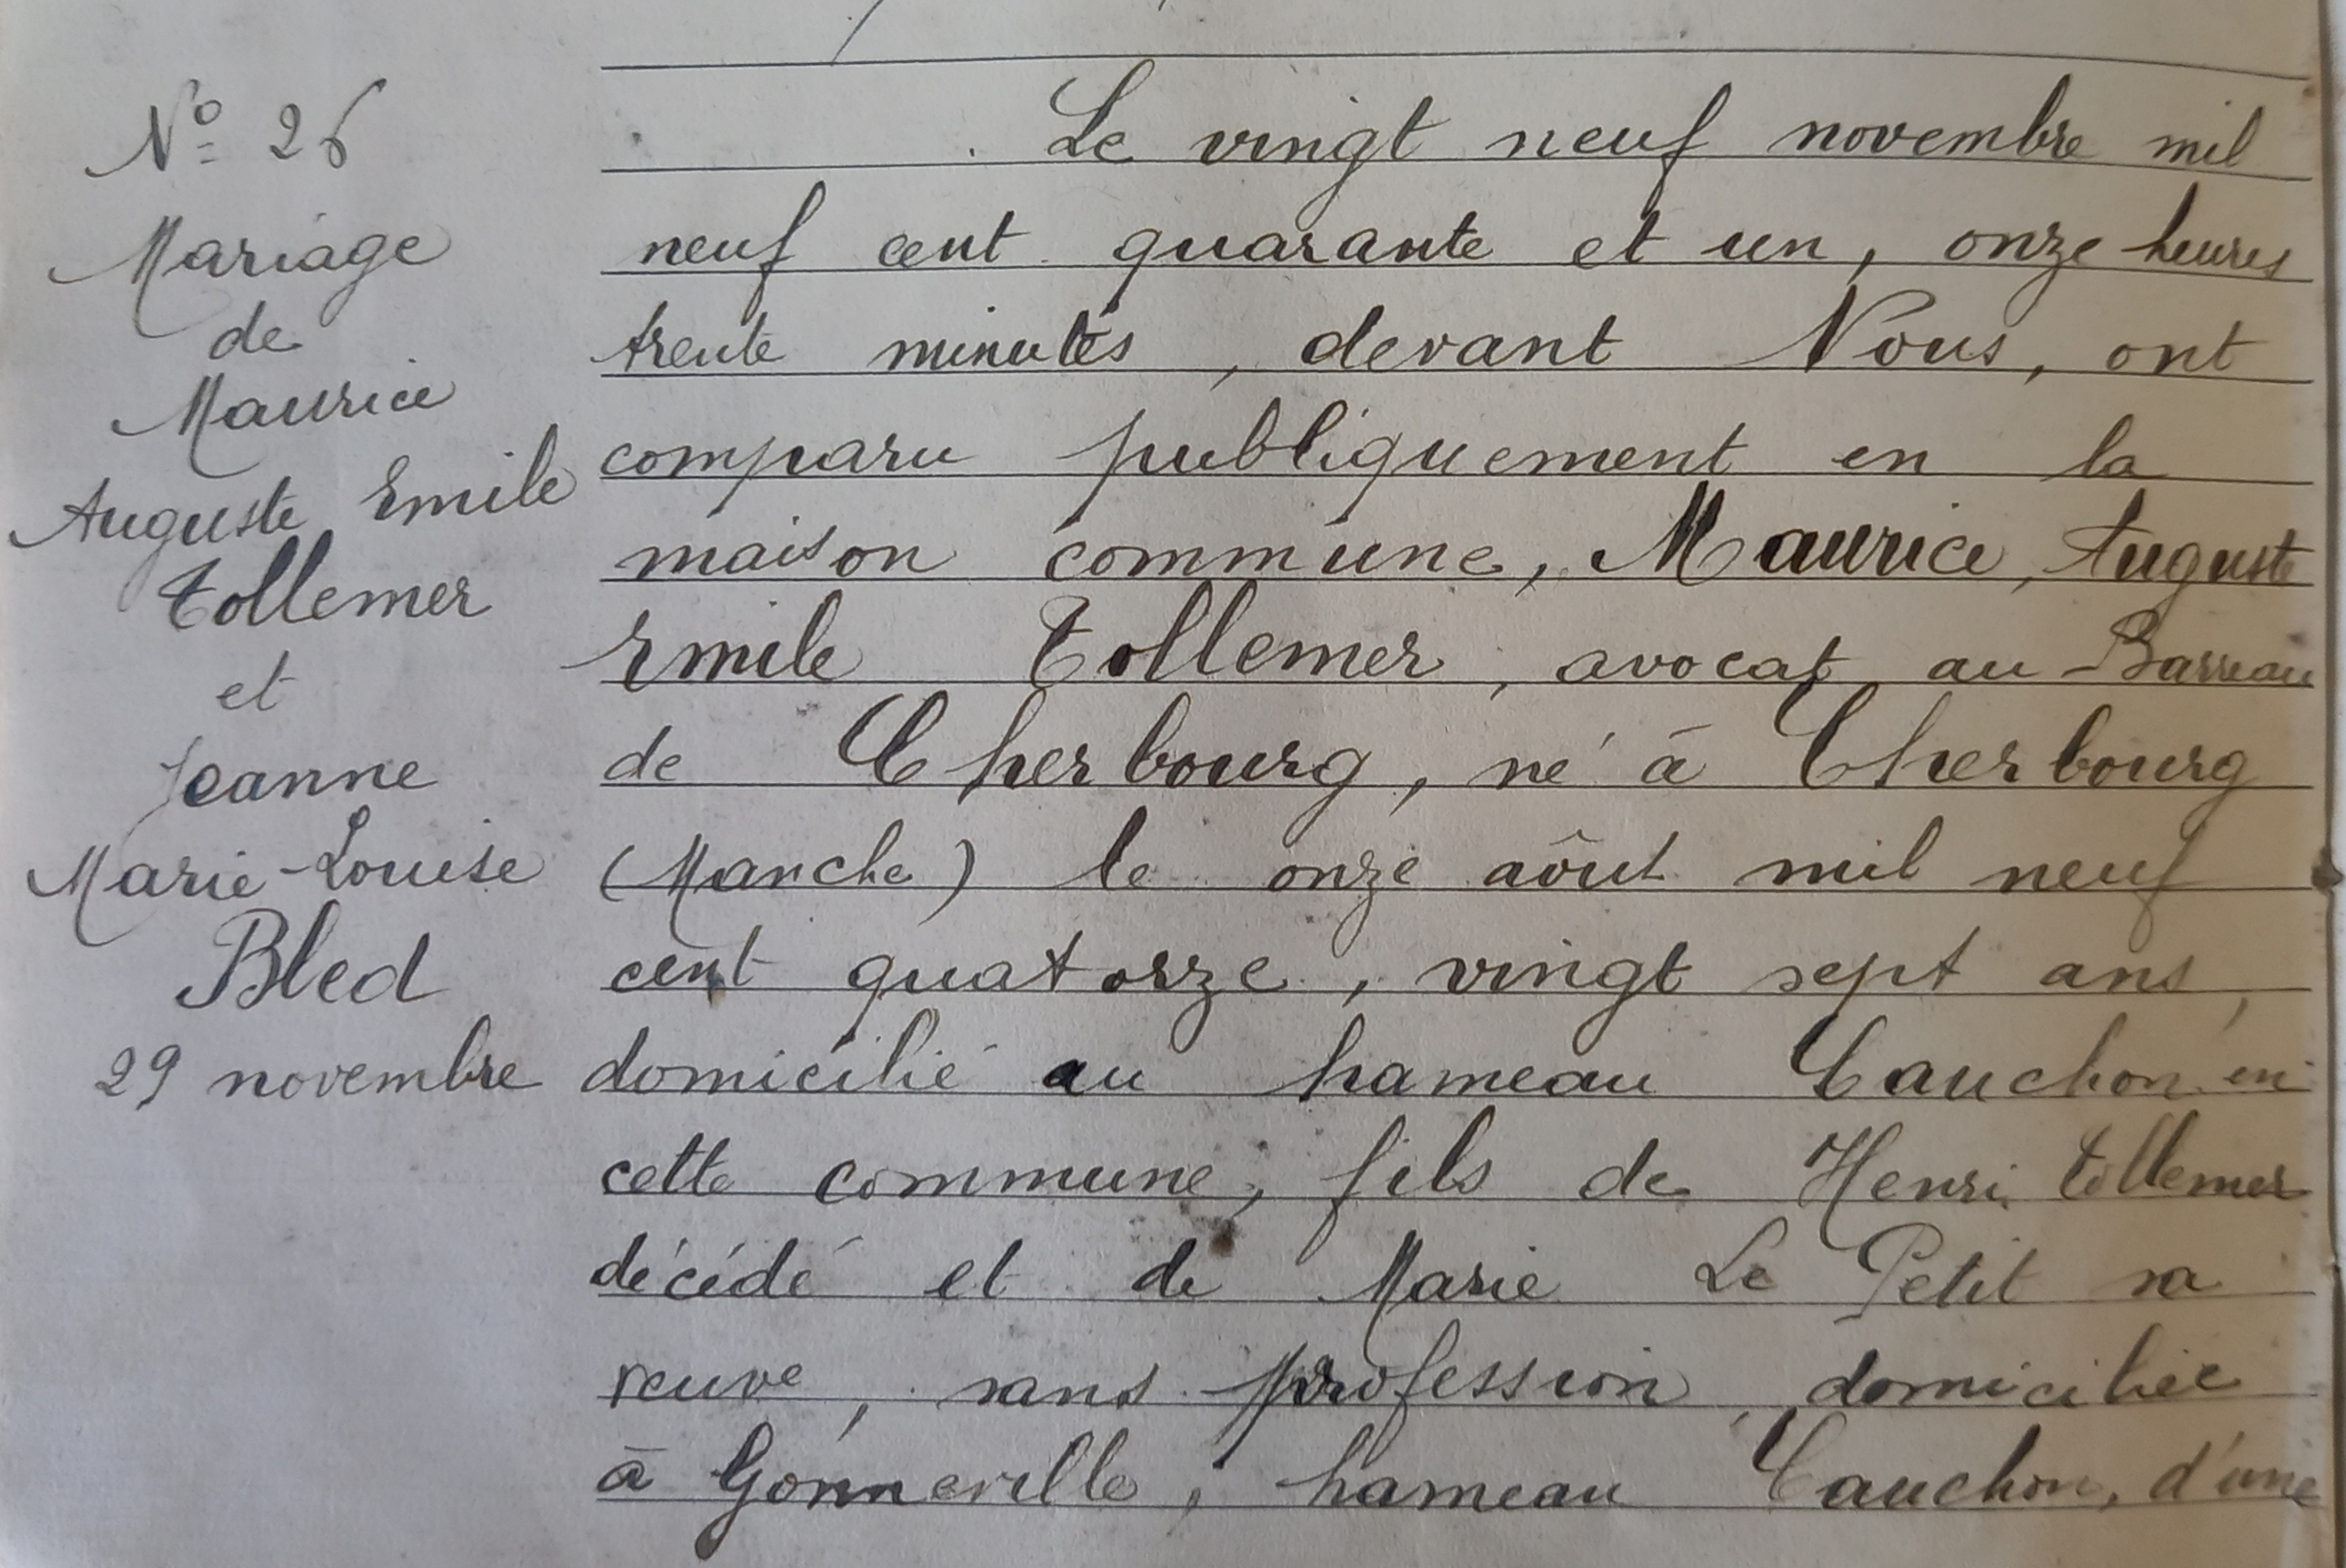 N° 26
Mariage
de
Maurice
Auguste Emile
Tollemer
et
Jeanne
Marie-Louise
Bled
29 novembre
Le vingt neuf novembre mil
neuf cent quarante et un, onze heures
trente minutes, devant Nous, ont
comparu publiquement en la
maison commune, Maurice, Auguste
Emile Tollemer, avocat au Barreau
de Cherbourg, né à Cherbourg
(Manche) le onze aôut mil neuf
cent quatorze, vingt sept ans,
domicilié au hameau Cauchon en
cette commune, fils de Henri Tollemer
décédé et de Marie Le Petit sa
veuve, sans profession, domiciliée
à Gonneville, hameau Cauchon, d'une